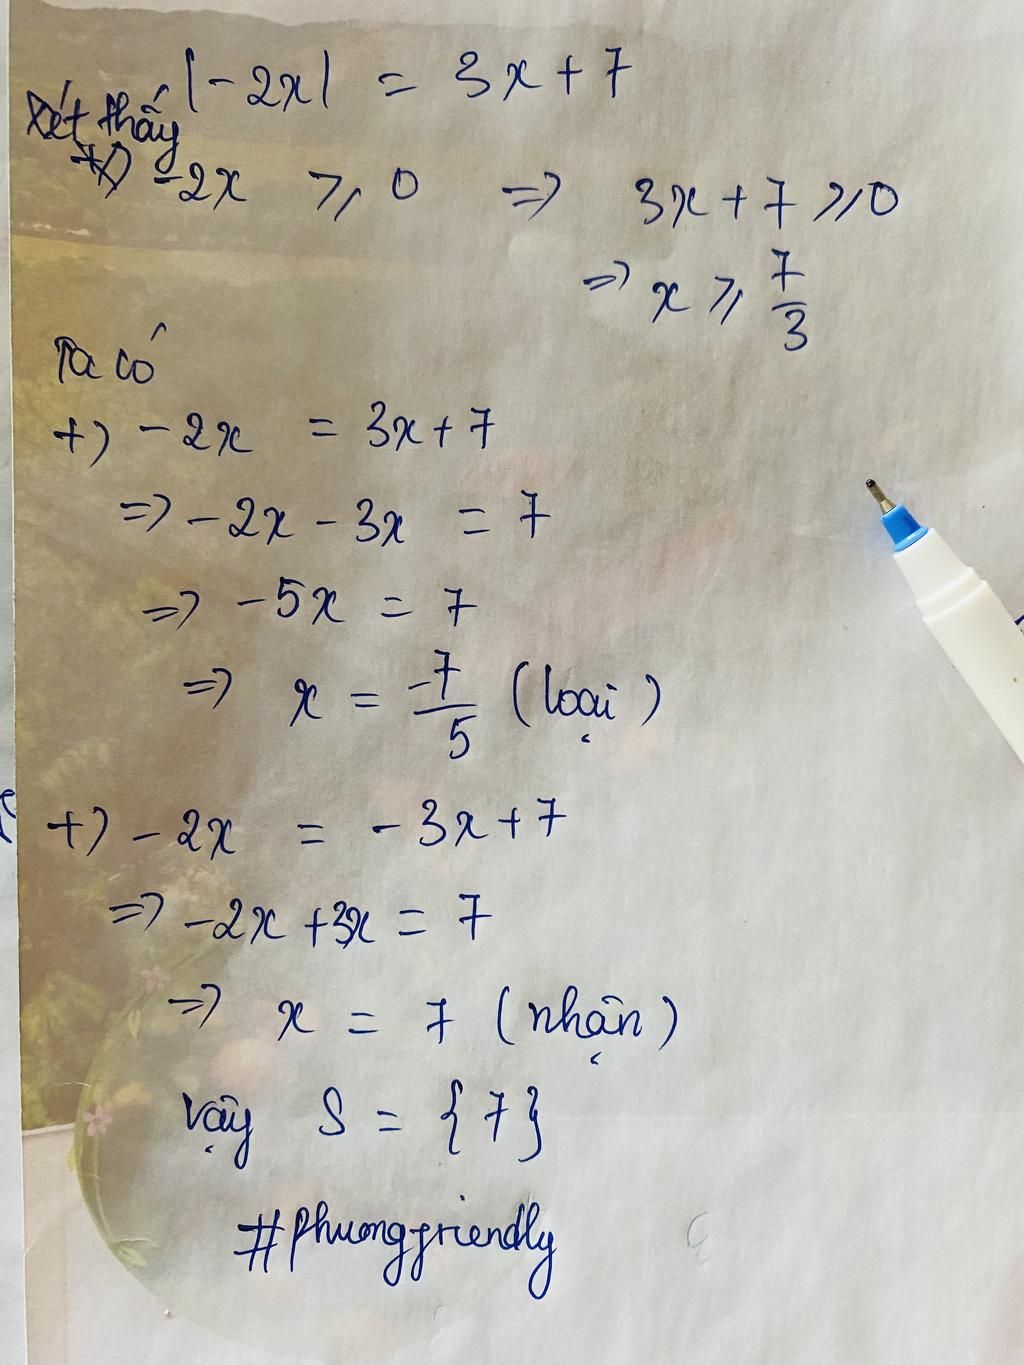 |-2x| = 3x + 7
Xét thấy
+) -2x ⩾ 0 => 3x + 7 ⩾ 0
=> x ⩾ 7/3
Ta có
+) -2x = 3x + 7
=> -2x - 3x = 7
=> -5x = 7
=> x = -7/5 (loại)
+) -2x = -3x + 7
=> -2x + 3x = 7
=> x = 7 (nhận)
Vậy S = {7}
#phuongfriendly